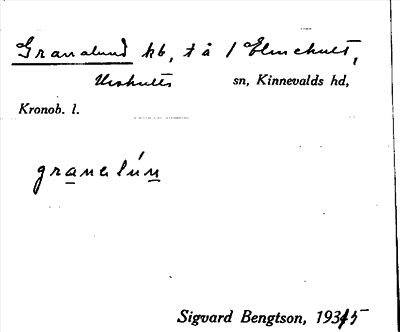 Granalund hb, t å 1 Elmehult,
Urshults sn, Kinnevalds hd,
Kronob. l.
granalún
Sigvard Bengtson, 1935